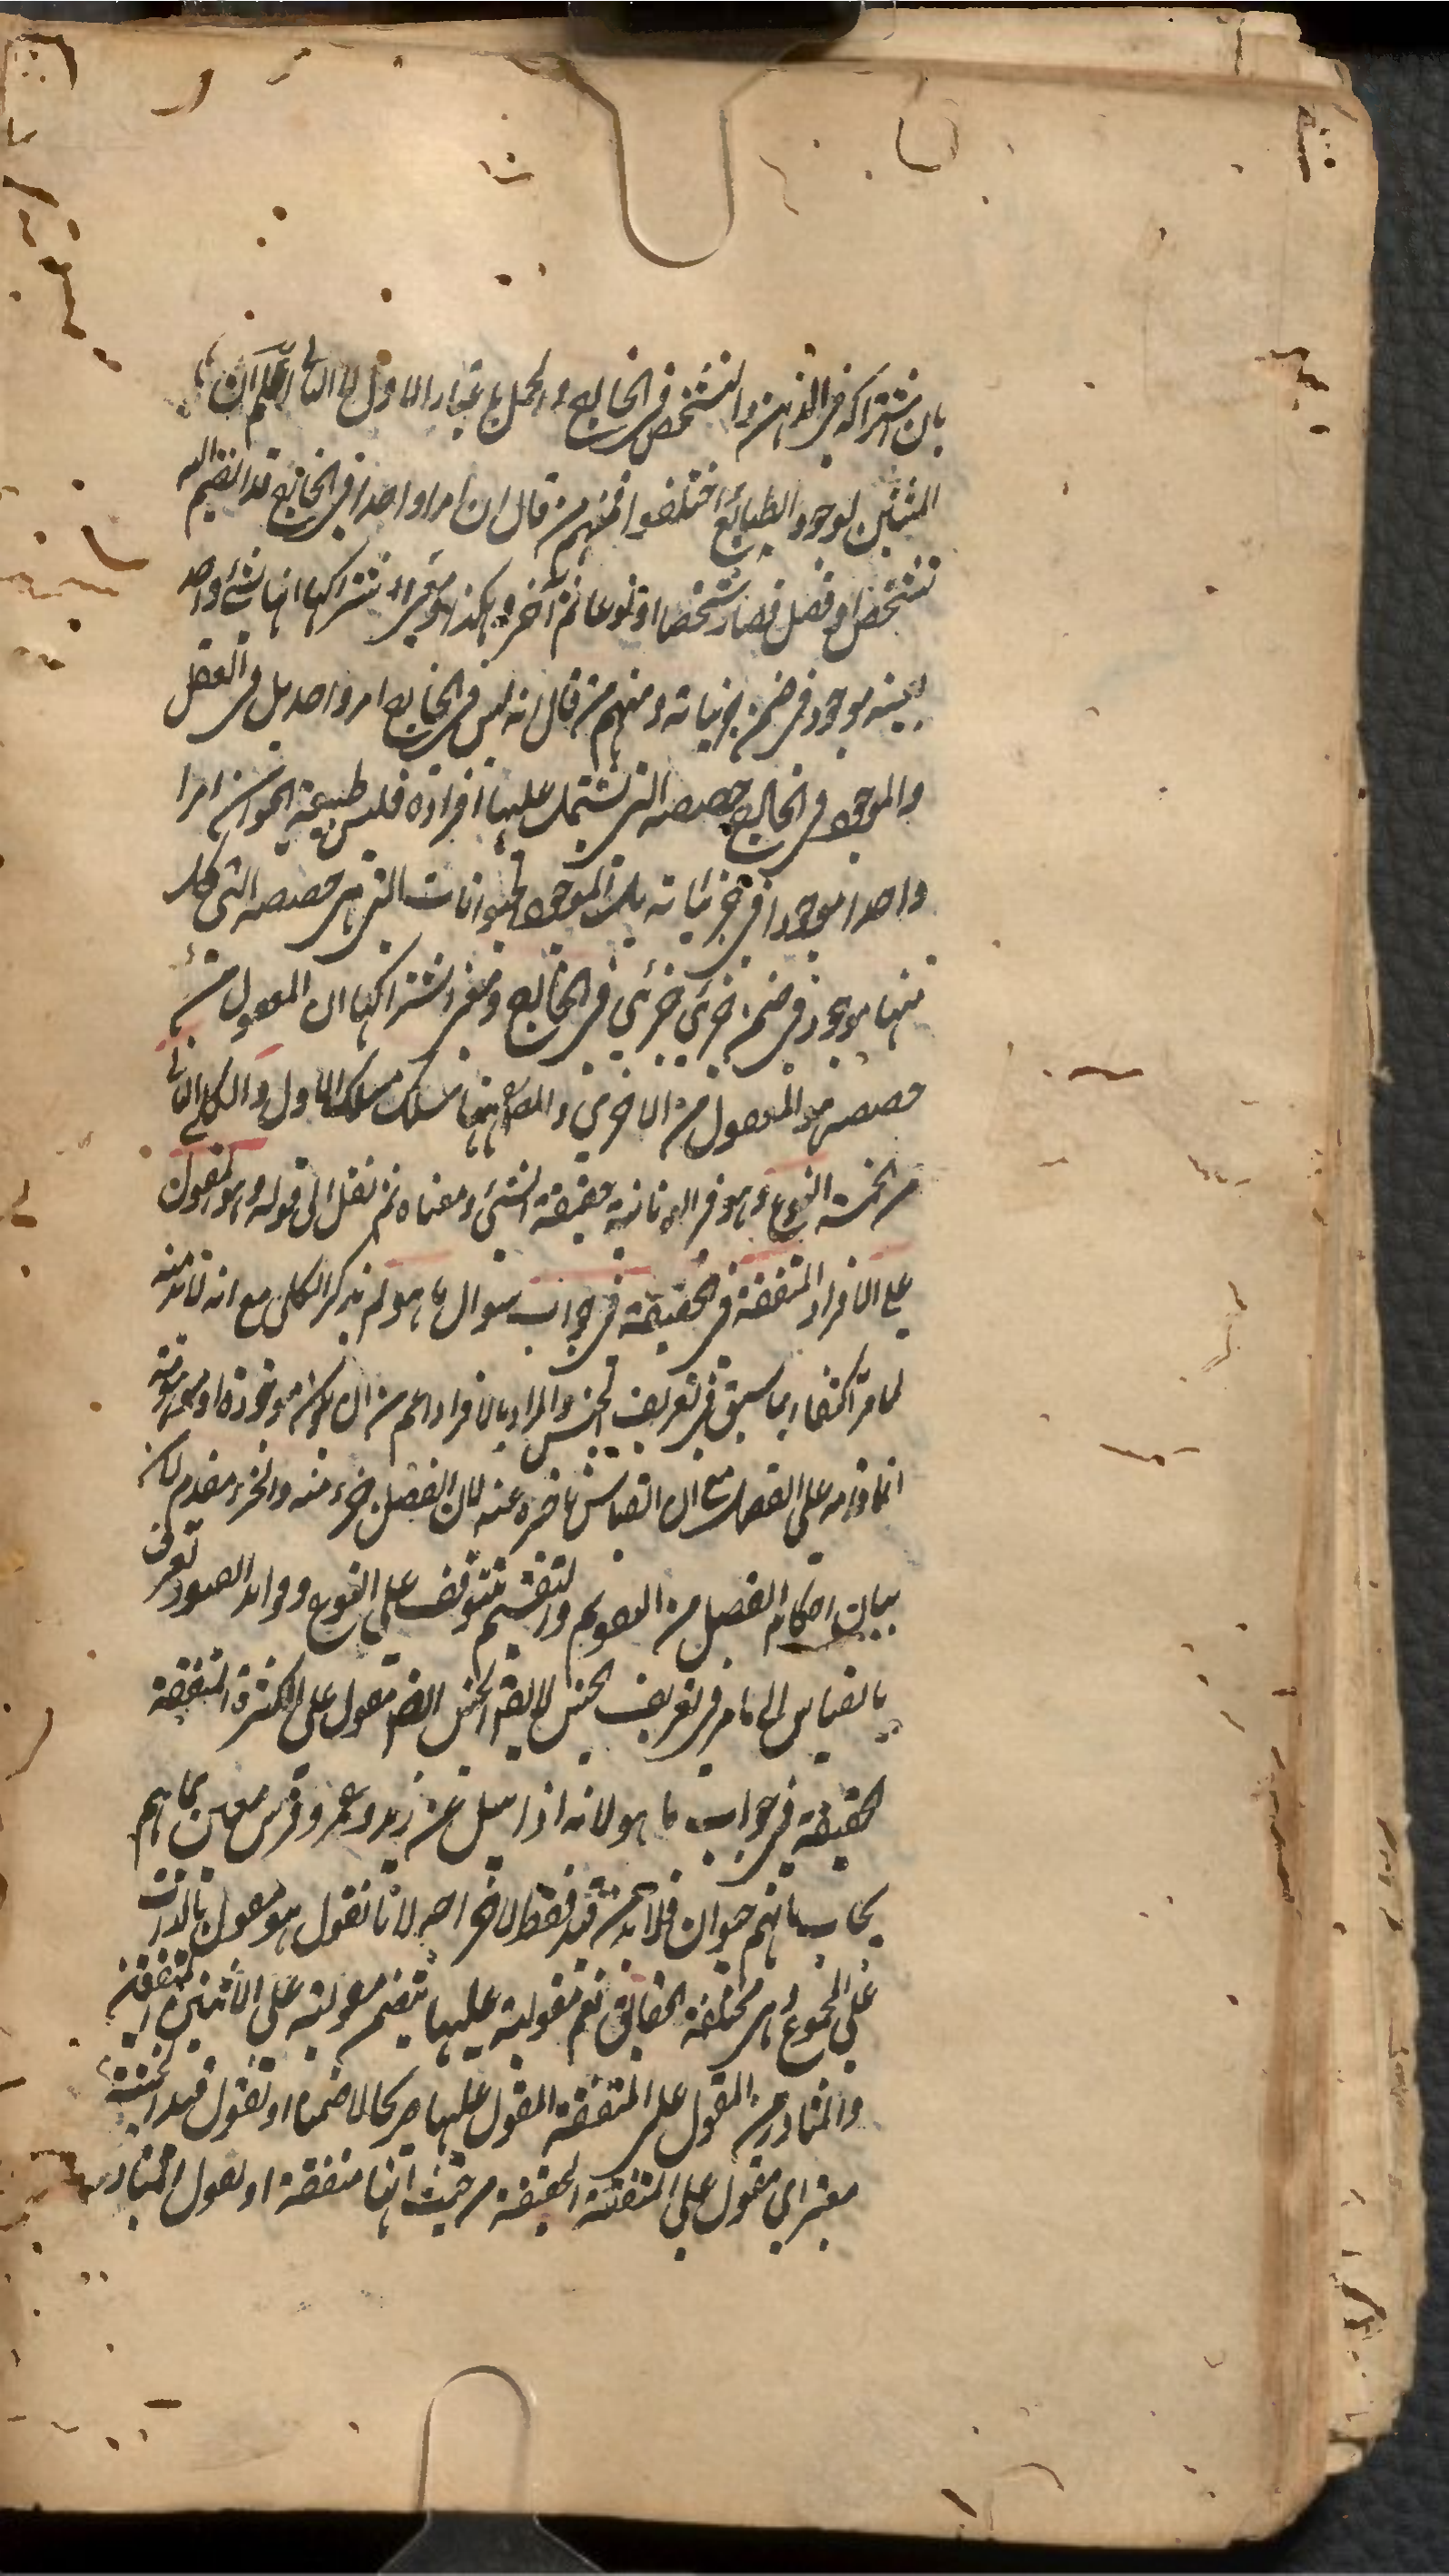 بان اشتراكه في الذهن والتشخص في الخارج والحمل باعتبار الاول لا الثاني اعلم ان
المثبتين لوجود الطبائع اختلفوا فمنهم من قال ان امرا واحدا في الخارج قد انضم اليه
تشخص او فصل فصار شخصا او نوعا ثم آخر وهكذا ومعنى اشتراكها انها شيء واحد
بعينه موجود في ضمن جزئياته ومنهم من قال انه ليس في الخارج امر واحد بل في العقل
والموجود في الخارج حصصه التي تشتمل عليها افراده فليس طبيعة الحيوان امرا
واحدا موجودا في جزئياته بل الموجود الحيوانات التي هي حصصه التي كل
منها موجود في ضمن جزئي جزئي في الخارج ومعنى اشتراكها ان المعقول من
حصصه هو المعقول من الاخرى والمص ههنا سلك مسلك الاول والكلي الثاني
من الخمسة النوع وهو في اليونانية حقيقة الشيء ومعناه ثم نقل الى قوله وهو المقول
على الافراد المتفقة في الحقيقة في جواب سوال ما هو لم يذكر الكلي مع انه لابد منه
لما مر اكتفاء بما سبق في تعريف الجنس والمراد بالافراد اعم من ان يكون موجودة او موهومة
انما قدمه على الفصل مع ان القياس تاخره عنه لان الفصل جزء منه والجزء مقدم لان
بيان احكام الفصل من التقويم والتقسيم تتوقف على النوع وفوائد القيود تعرف
بالقياس الى ما مر في تعريف الجنس لا يقال الجنس ايضا مقول على الكثرة المتفقة
الحقيقة في جواب ما هو لانه اذا سئل عن زيد وعمرو وفرس معين بما هم
يجاب بانهم حيوان فلابد من قيد فقط لاخراجه لانا نقول هو مقول بالذات
على المجموع وهي مختلفة الحقائق نعم مقوليته عليها يتضمن مقوليته على الاثنين المتفقة
والمتبادر من المقول على المتفقة المقول عليها صريحا لا ضمنا او نقول قيد الحيثية
معتبر اي مقول على المتفقة الحقيقة من حيث انها متفقة او نقول المتبادر